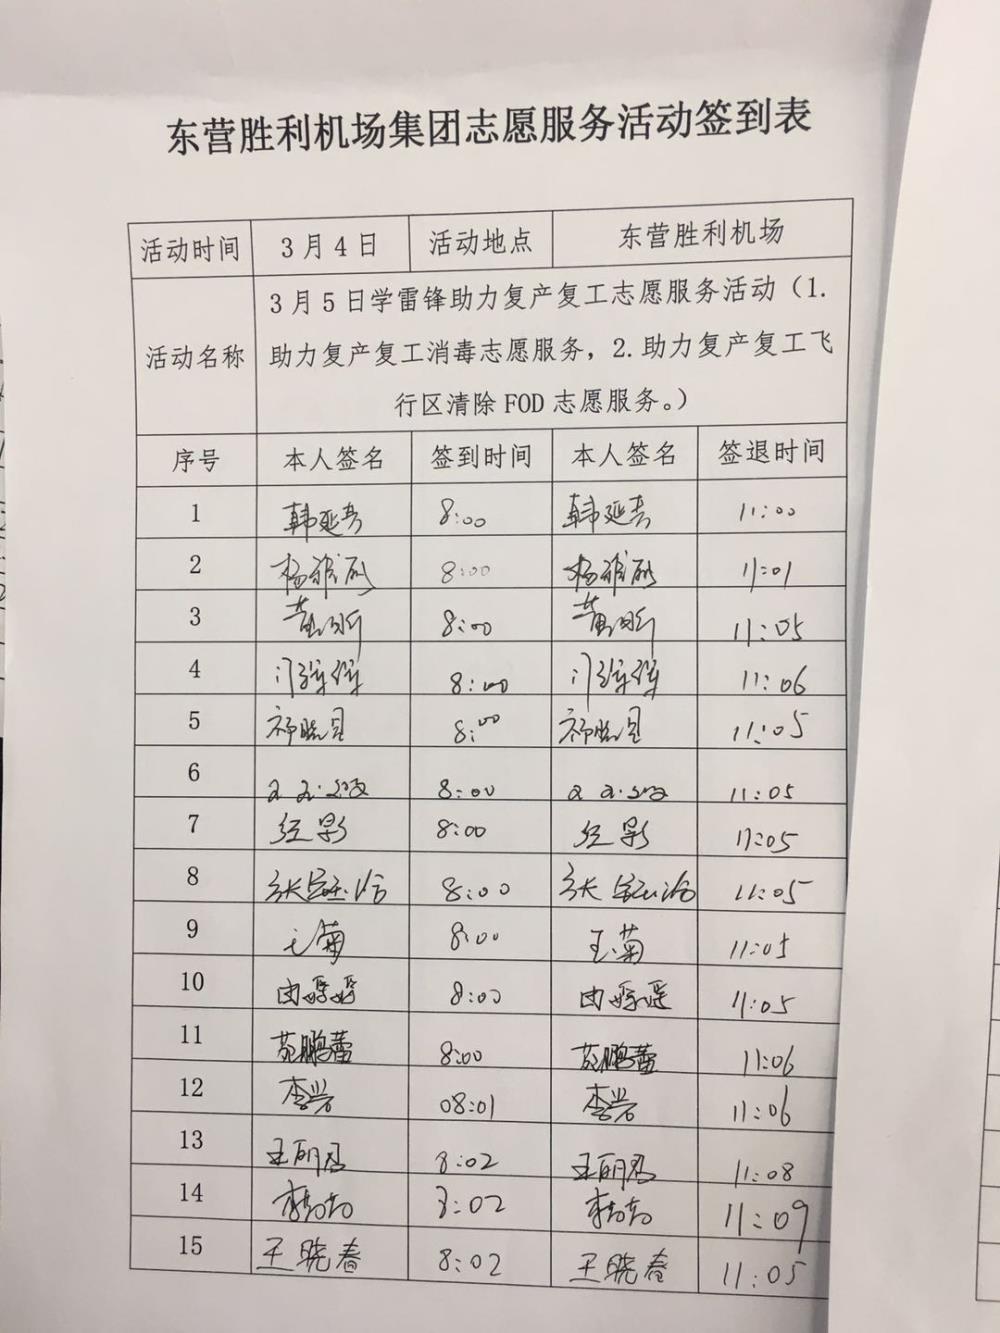 东营胜利机场集团志愿服务活动签到表
活动时间 3月4日 活动地点 东营胜利机场
活动名称 3月5日学雷锋助力复产复工志愿服务活动（1.
助力复产复工消毒志愿服务，2.助力复产复工飞
行区清除FOD志愿服务。）
序号 本人签名 签到时间 本人签名 签退时间
1 韩延 8:00 韩延 11:00
2 杨雅 8:00 杨雅 11:01
3 黄 8:00 黄 11:05
4 8:00 11:06
5 祁晓 8:00 祁晓 11:05
6 8:00 11:05
7 8:00 11:05
8 张 8:00 张 11:05
9 王菊 8:00 王菊 11:05
10 由 8:00 由 11:05
11 苑鹏蕾 8:00 苑鹏蕾 11:06
12 李兴 08:01 李兴 11:06
13 王丽君 8:02 王丽君 11:08
14 李 8:02 李 11:09
15 王晓春 8:02 王晓春 11:05